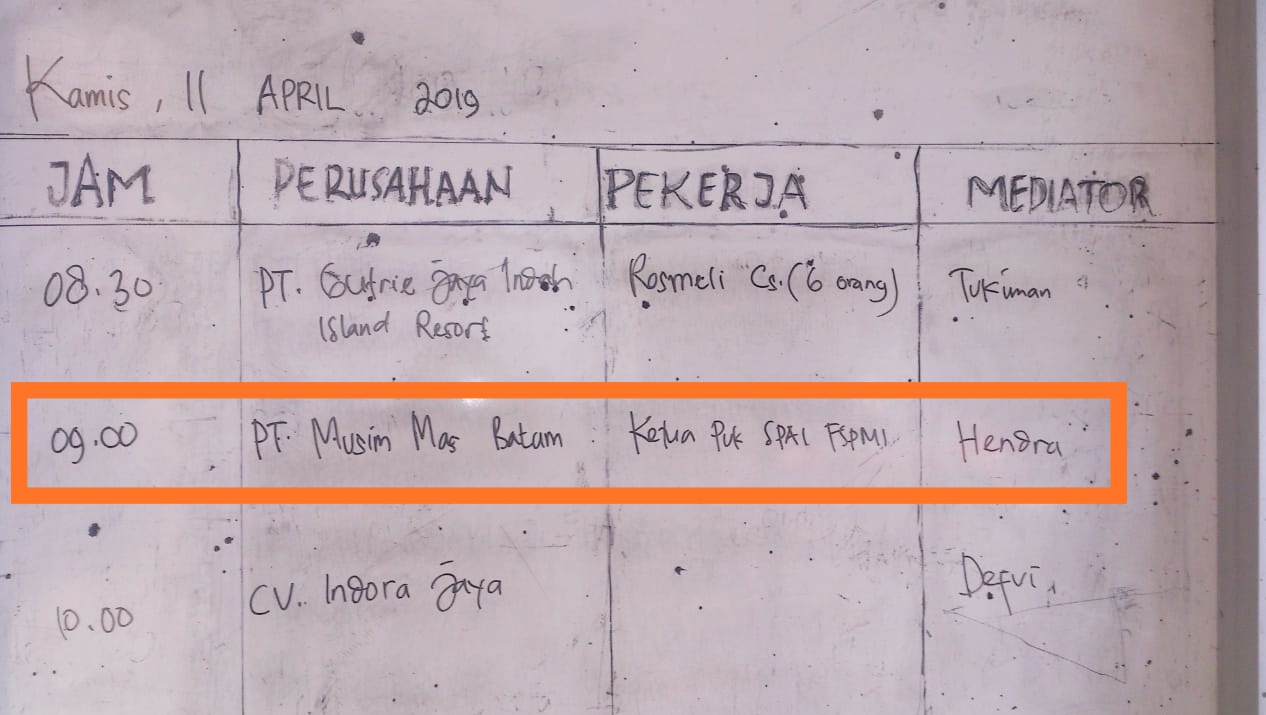 Kamis, 11 APRIL 2019
JAM PERUSAHAAN PEKERJA MEDIATOR
08.30 PT. Gutrie Jaya Indah Rosmeli Cs. (6 orang) Tukiman
Island Resort
09.00 PT. Musim Mas Batam Ketua Puk SPAI FSPMI Hendra
10.00 CV. Indora Jaya Defvi